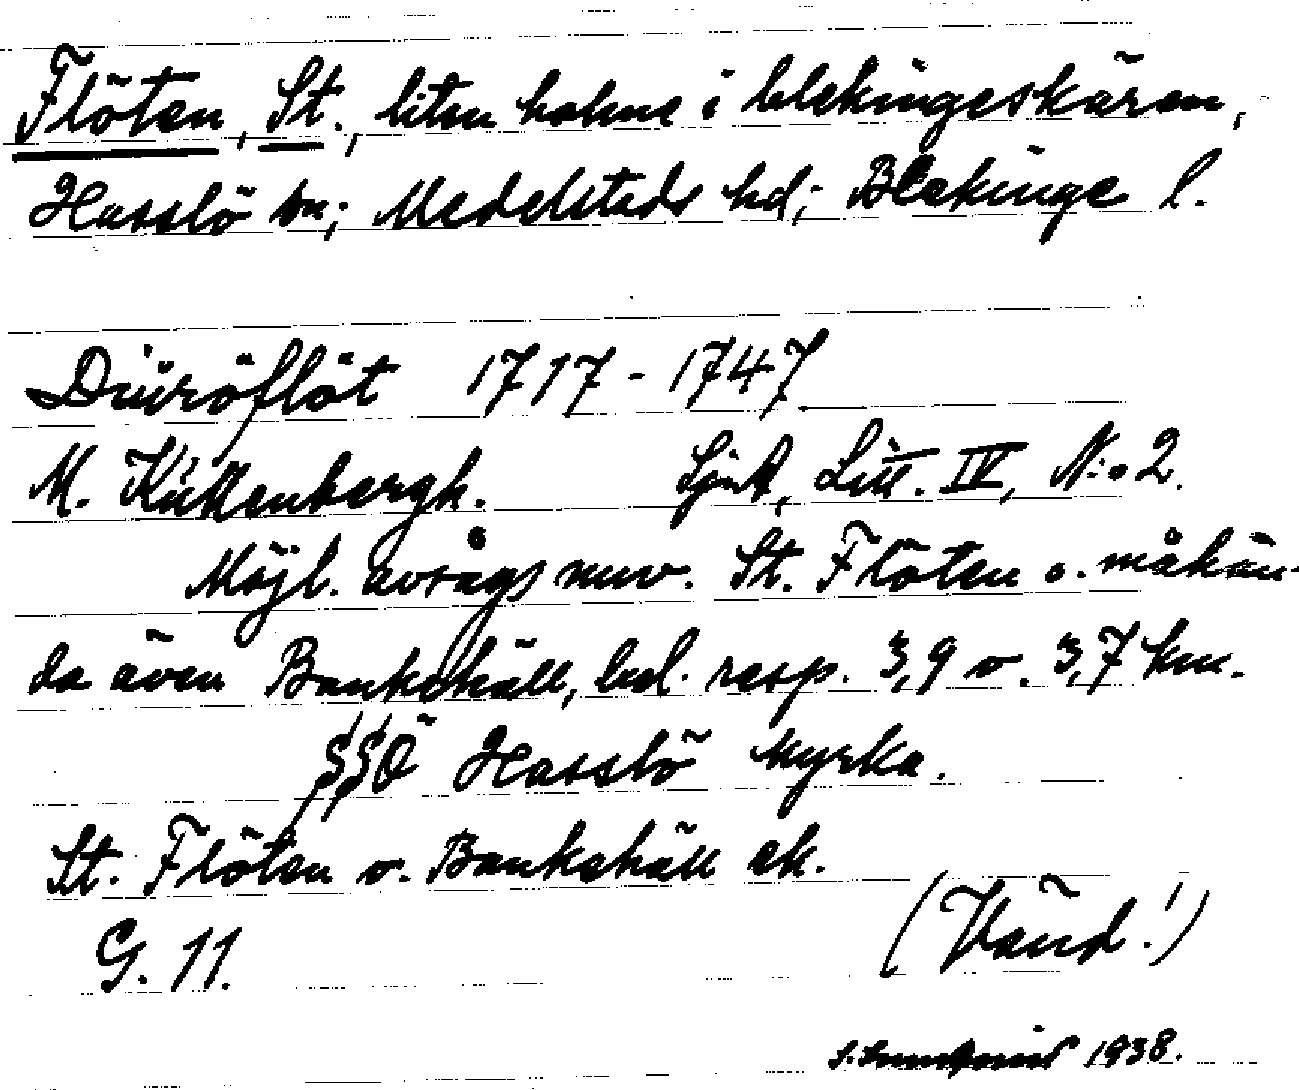 Flöten, St., liten holme i blekingeskären,
Hasslö sn; Medelstads hd; Blekinge l.
Düüröflöt 1717 - 1747
M. Küllenbergh. Sjk A, Litt. IV, N:o 2.
Möjl. avsågs nuv. St. Flöten o. måhän-
da även Bankehäll, bel. resp. 3,9 o. 3,7 km.
SSÖ Hasslö kyrka.
St. Flöten o. Bankehäll ek.
G. 11. (Vänd!)
1938.